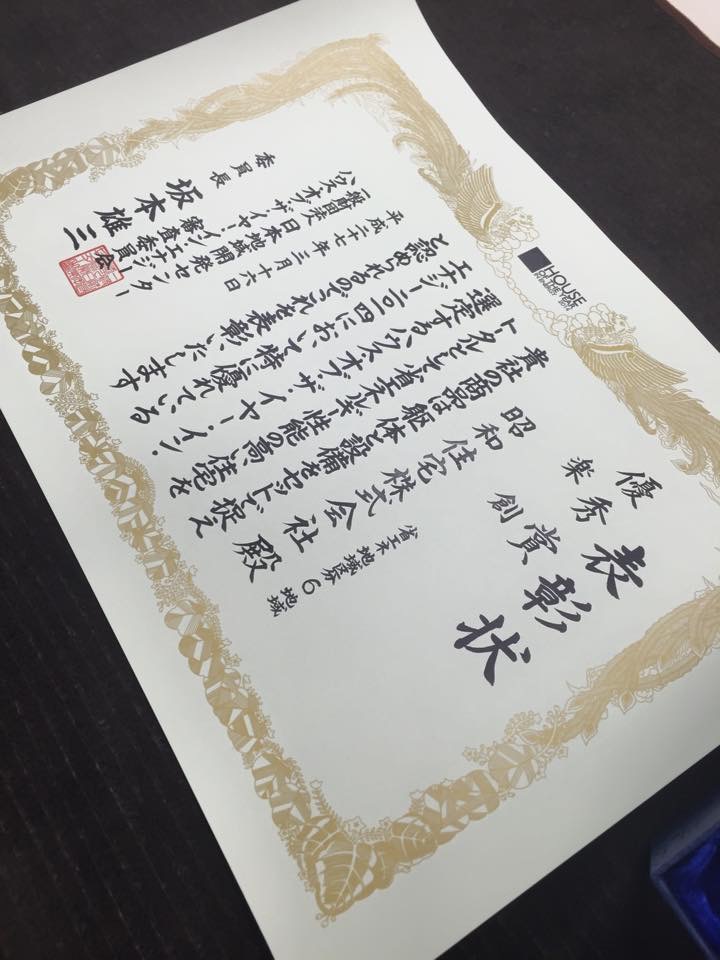 HOUSE
OF THE YEAR
IN ENERGY
表彰状
優秀賞
楽創
省エネ地域区分 6地域
昭和住宅株式会社 殿
貴社の商品は躯体と設備をセットで捉え
トータルとして省エネルギー性能の高い住宅を
選定するハウス・オブ・ザ・イヤー・イン・
エナジー二〇一四において特に優れている
と認められるのでこれを表彰いたします
平成二十七年三月十六日
一般財団法人 日本地域開発センター
ハウス・オブ・ザ・イヤー・イン・エナジー
審査委員会
委員長 坂本雄三